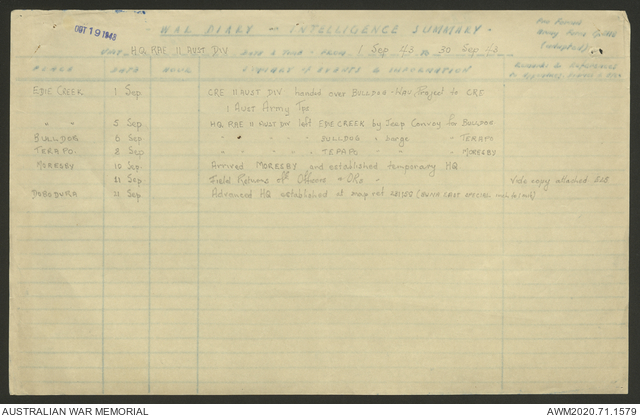 OCT 19 1943
WAR DIARY or INTELLIGENCE SUMMARY.
Army Form
(adapted)
UNIT HQ RAE 11 AUST DIV DATE & TIME FROM 1 Sep 43 TO 30 Sep 43
PLACE DATE HOUR SUMMARY OF EVENTS & INFORMATION
EDIE CREEK 1 Sep CRE 11 AUST DIV handed over BULLDOG - WAU Project to CRE
1 Aust Army Tps
" " 5 Sep HQ RAE 11 AUST DIV left EDIE CREEK by Jeep Convoy for BULLDOG
BULLDOG 6 Sep " " " " " BULLDOG " barge " TERAPO
TERAPO 8 Sep " " " " " TERAPO " " " MORESBY
MORESBY 10 Sep Arrived MORESBY and established temporary HQ
11 Sep Field Returns of Officers & ORs Vide copy attached
DOBODURA 21 Sep Advanced HQ established at map ref
AUSTRALIAN WAR MEMORIAL AWM2020.71.1579